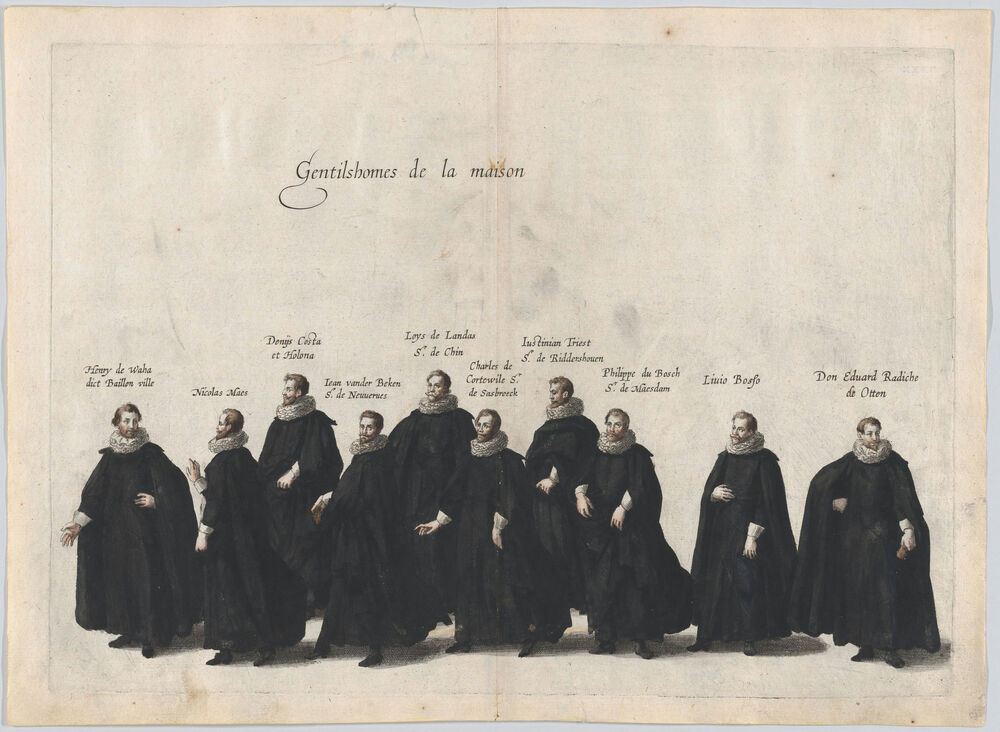 Gentilshomes de la maison
Henry de Waha
dict Baillon ville
Nicolas Maes
Donijs Costa
et Holona
Iean vander Beken
Sr. de Neuuerues
Loys de Landas
Sr. de Chin
Charles de
Cortewile Sr.
de Sasbroeck
Iustinian Triest
Sr. de Riddershouen
Philippe du Bosch
Sr. de Maesdam
Liuio Bosso
Don Eduard Radiche
de Otten